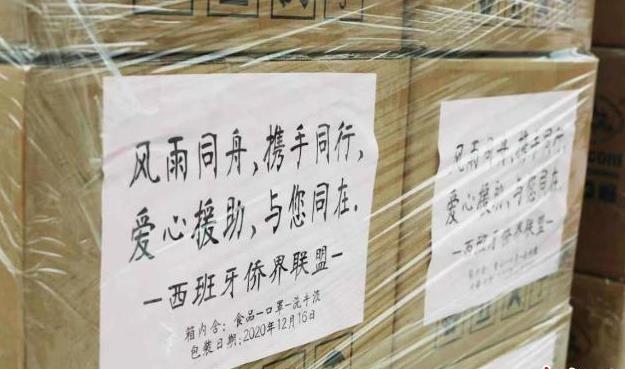 风雨同舟、携手同行,
爱心援助、与您同在.
—西班牙侨界联盟—
箱内含:食品—口罩—洗手液
包装日期:2020年12月16日
风雨同舟、携手同行,
爱心援助、与您同在.
—西班牙侨界联盟—